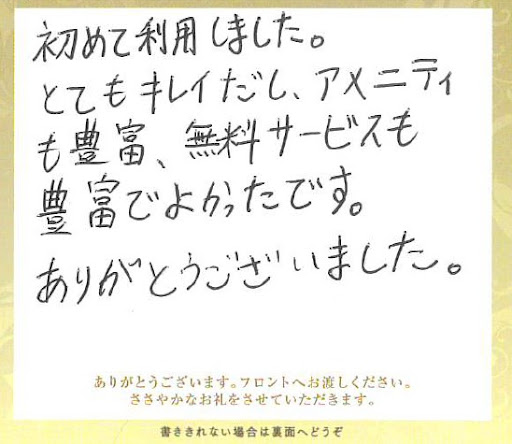 初めて利用しました。
とてもキレイだし、アメニティ
も豊富、無料サービスも
豊富でよかったです。
ありがとうございました。
ありがとうございます。フロントへお渡しください。
ささやかなお礼をさせていただきます。
書ききれない場合は裏面へどうぞ